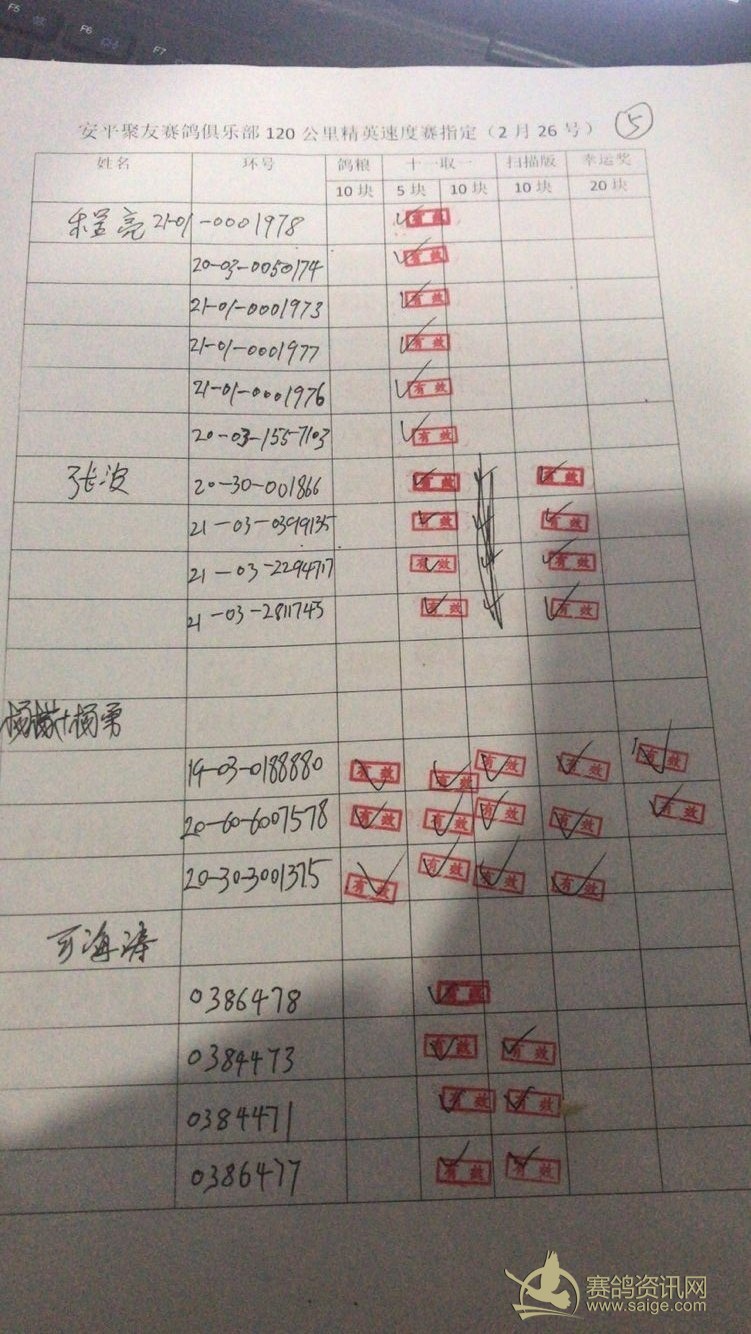 F5 F6 F7
安平聚友赛鸽俱乐部 120 公里精英速度赛指定（2 月 26 号） ⑤
姓名 环号 鸽粮 十一取一 扫描版 幸运奖
10 块 5 块 10 块 10 块 20 块
程亮 21-01-0001978 有效
20-03-0050174 有效
21-01-0001973 有效
21-01-0001977 有效
21-01-0001976 有效
20-03-1557103 有效
张波 20-30-001866 有效 有效
21-03-0399135 有效 有效
21-03-2294717 有效 有效
21-03-2811745 有效 有效
杨勇
19-03-0188880 有效 有效 有效 有效 有效
20-60-6007578 有效 有效 有效 有效 有效
20-30-3001375 有效 有效 有效 有效
海涛
0386478 有效
0384473 有效 有效
0384471 有效 有效
0386477 有效 有效
赛鸽资讯网
www.saige.com